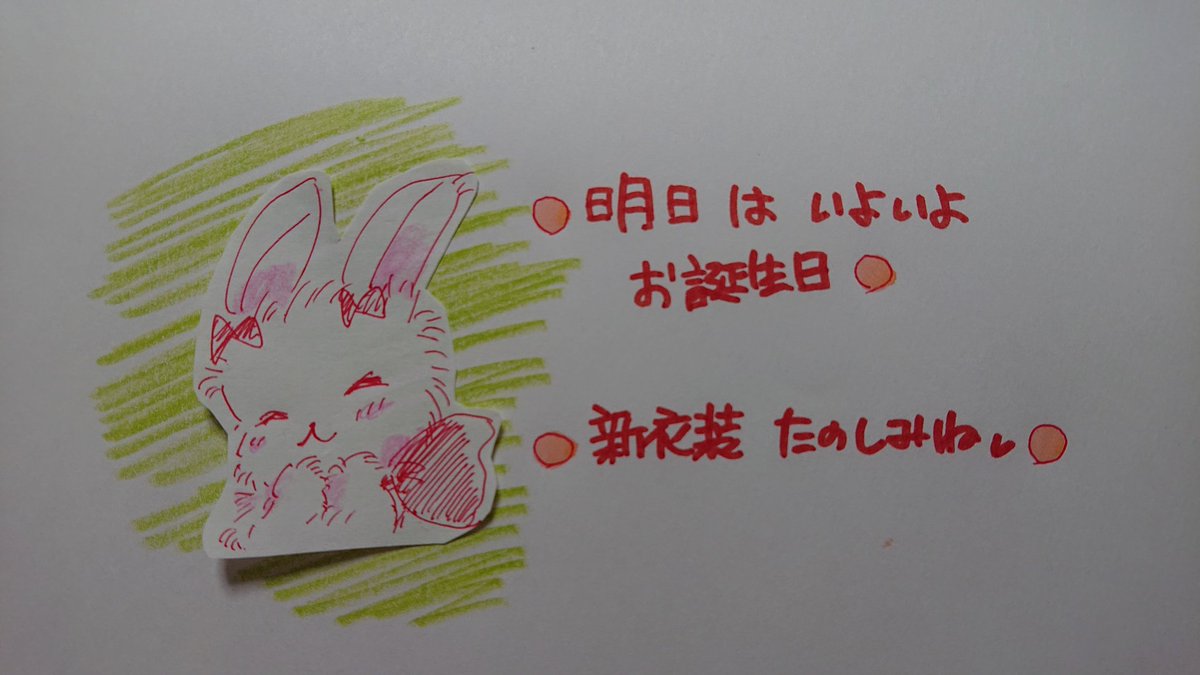 明日は いよいよ
お誕生日
新衣装 たのしみね